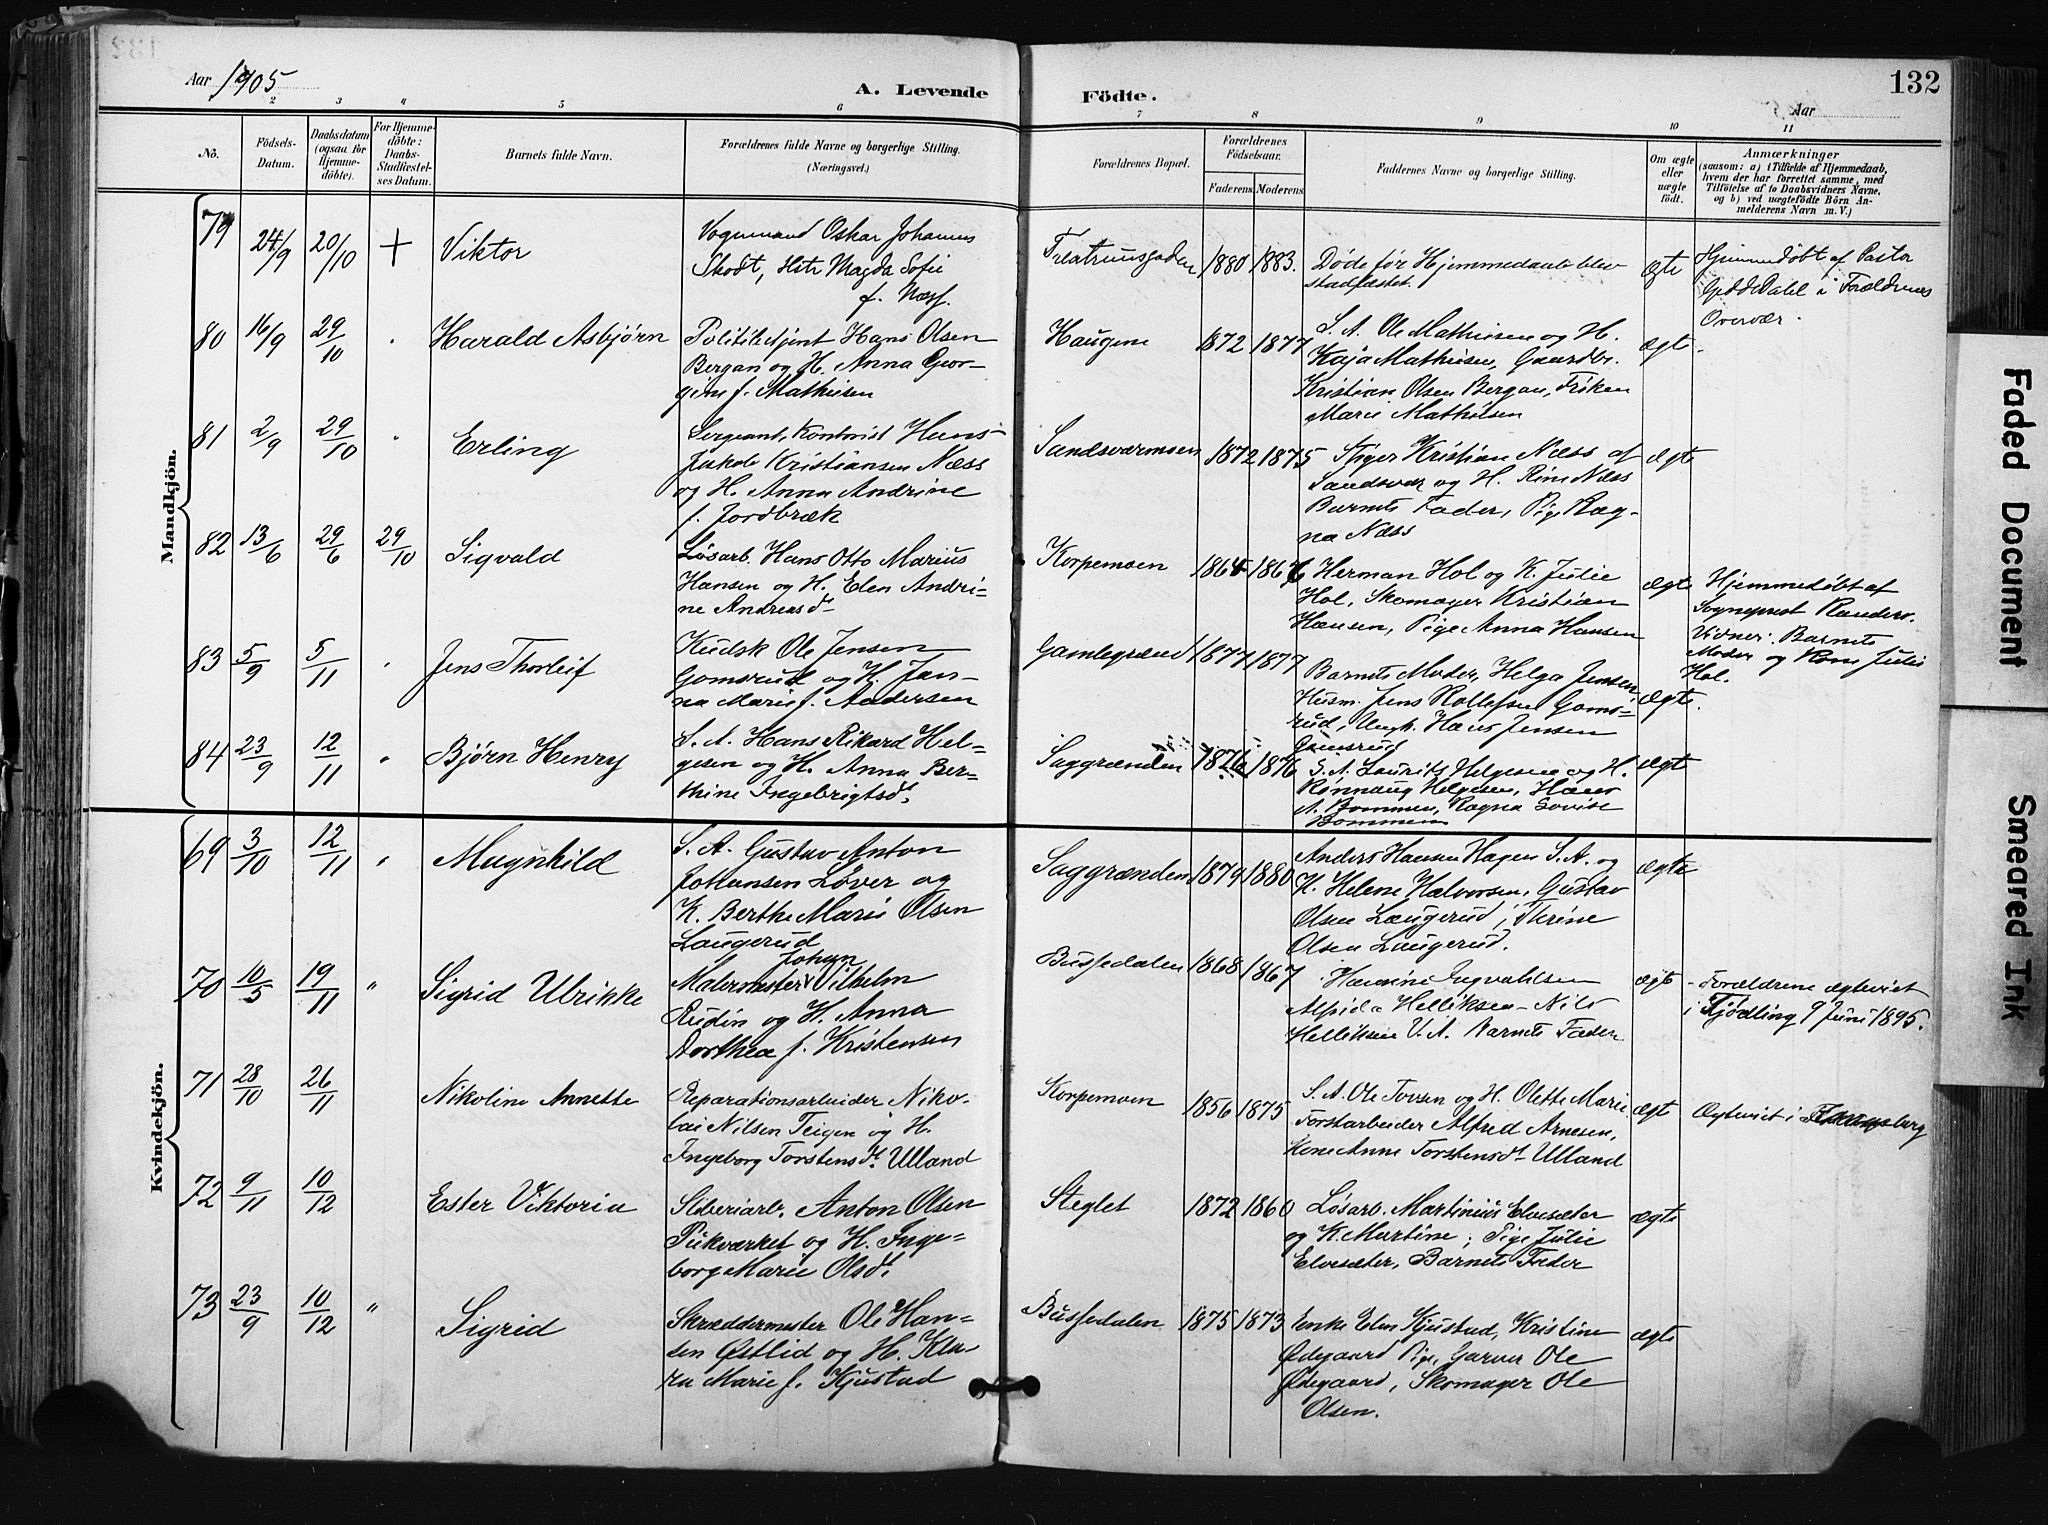 132
Aar 1905
A. Levende
Födte.
Aar
2 3 4 5 6 7 8 9 10 11
No.
Födsels-
Datum.
Daabsdatum
(ogsaa for
Hjemme-
döbte).
For Hjemme-
döbte:
Daabs-
Stadfæstel-
ses Datum.
Barnets fulde Navn.
Forældrenes fulde Navne og borgerlige Stilling.
(Næringsvei.)
Forældrenes Bopæl.
Forældrenes
Födselsaar.
Faderens. Moderens.
Faddernes Navne og borgerlige Stilling.
Om ægte
eller
uægte
födt.
Anmærkninger
(saasom: a) i Tilfælde af Hjemmedaab,
hvem der har forrettet samme, med
Tilföielse af to Daabsvidners Navne,
og b) ved uægtefödte Börn An-
melderens Navn m. V.)
Mandkjön.
79 24/9 20/10 + Viktor
Vognmand Oskar Johannes
Skodt, Hstr Magda Sofie
f. Næss.
1880 1883.
Døde før Hjemmedaab blev
stadfæstet.
ægte
Hjemmedøbt af Pastor
Gjeddedahl i Forældrenes
Overvær.
80 16/9 29/10 " Harald Asbjørn
Politibetjent Hans Olsen
Bergan og H. Anna Geor-
gine f. Mathisen
Haugene 1872 1877
S. A. Ole Mathisen og H.
Kaja Mathisen, Gaardbr.
Kristian Olsen Bergan, Frøken
Marie Mathisen
ægt.
81 2/9 29/10 " Erling
Sergeant, Kontorist Hans
Jakob Kristiansen Næss
og H. Anna Andrine
f. Jordbræk
Sandsværmoen 1872 1875
Stiger Kristian Næss af
Sandsvær og H. Rine Næss
Barnets Fader, Pige Rag-
na Næss
ægte
82 13/6 29/6 29/10 Sigvald
Løsarb. Hans Otto Marius
Hansen og H. Elen Andri-
ne Andreasdt
Korpemoen 1864 1867
Herman Hol og K. Julie
Hol, Skomager Kristian
Hansen, Pige Anna Hansen
ægte
Hjemmedøbt af
Sogneprest Randers.
Vidner: Barnets
Moder og Kone Julie
Hol.
83 5/9 5/11 " Jens Thorleif
Kudsk Ole Jensen
Gomsrud og H. Jan-
na Marie f. Andersen
Gamlegrænd 1877 1877
Barnets Moder, Helga Jensen
Husm. Jens Rollefsen Goms-
rud, Ungk. Hans Jensen
Gomsrud
ægte.
84 23/9 12/11 " Bjørn Henry
S. A. Hans Rikard Hel-
gesen og H. Anna Ber-
thine Ingebrigtsdt
Saggrænden 1876 1876
S. A. Laurits Helgesen og H.
Rønnaug Helgesen, Hans
A. Bommen, Ragna Lovise
Bommen
ægte
Kvindekjön.
69 3/10 12/11 " Magnhild
S. A. Gustav Anton
Johansen Løver og
K. Berthe Marie Olsen
Laugerud
Saggrænden 1879 1880
Anders Hansen Hagen S. A. og
K. Helene Halvorsen, Gustav
Olsen Laugerud, Thrine
Olsen Laugerud.
ægte
70 10/5 19/11 " Sigrid Ulrikke
Johan
Malermester Vilhelm
Rudin og H. Anna
Dorthea f. Kristensen
Bussedalen 1868 1867
Hansine Ingvaldsen
Alfida Helliksen - Nils
Helliksen U. A. Barnets Fader
ægte
Forældrene ægteviet
i Fjødling 9 Juni 1895.
71 28/10 26/11 Nikoline Annette
Reparationsarbeider Niko-
lai Nilsen Teigen og H.
Ingeborg Torstensdt Ulland
Korpemoen 1856 1875
S. A. Ole Torsen og H. Olette Marie
Forstarbeider Alfred Arnesen,
Kone Anne Torstensdt Ulland
ægte
Ægteviet i
72 9/11 10/12 Ester Viktoria
Sliberiarb. Anton Olsen
Pukværket og H. Inge-
borg Marie Olsdt
Steglet 1872 1860
Løsarb. Martinius Elvesæter
og K. Martine; Pige Julie
Elvesæter, Barnets Fader
ægte
73 23/9 10/12 " Sigrid
Skræddermester Ole Han-
sen Østlid og H. Kla-
ra Marie f. Kjustad
Bussedalen 1875 1873
Enke Elen Kjustad, Kristine
Ødegaard Pige, Garver Ole
Ødegaard, Skomager Ole
Olsen.
ægte
Faded Document
Smeared Ink